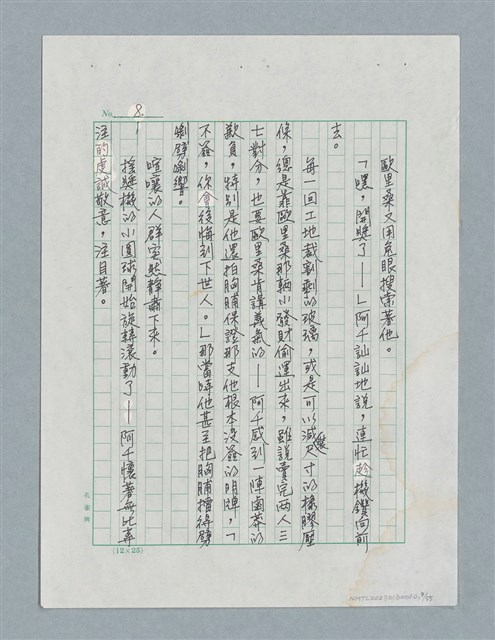 No. 8.
歐里桑又用兔眼搜索著他。
「嘿，開獎了——」阿千訕訕地說，連忙趁機鑽向前
去。
每一回工地裁割剩的玻璃，或是可以減尺寸的橡膠壓
條，總是靠歐里桑那輛小發財偷運出來，雖說賣完兩人三
七對分，也要歐里桑肯講義氣的——阿千感到一陣鹵莽的
歉負，特別是他還拍胸脯保證那支他根本沒簽的明牌，「
不簽，你會後悔到下世人。」那當時他甚至把胸脯擂得劈
剝劈剝響。
喧嚷的人群突然靜肅下來。
搖獎機的小圓球開始旋轉滾動了——阿千懷著無比專
注的虔誠敬意，注目著。
(12×25)